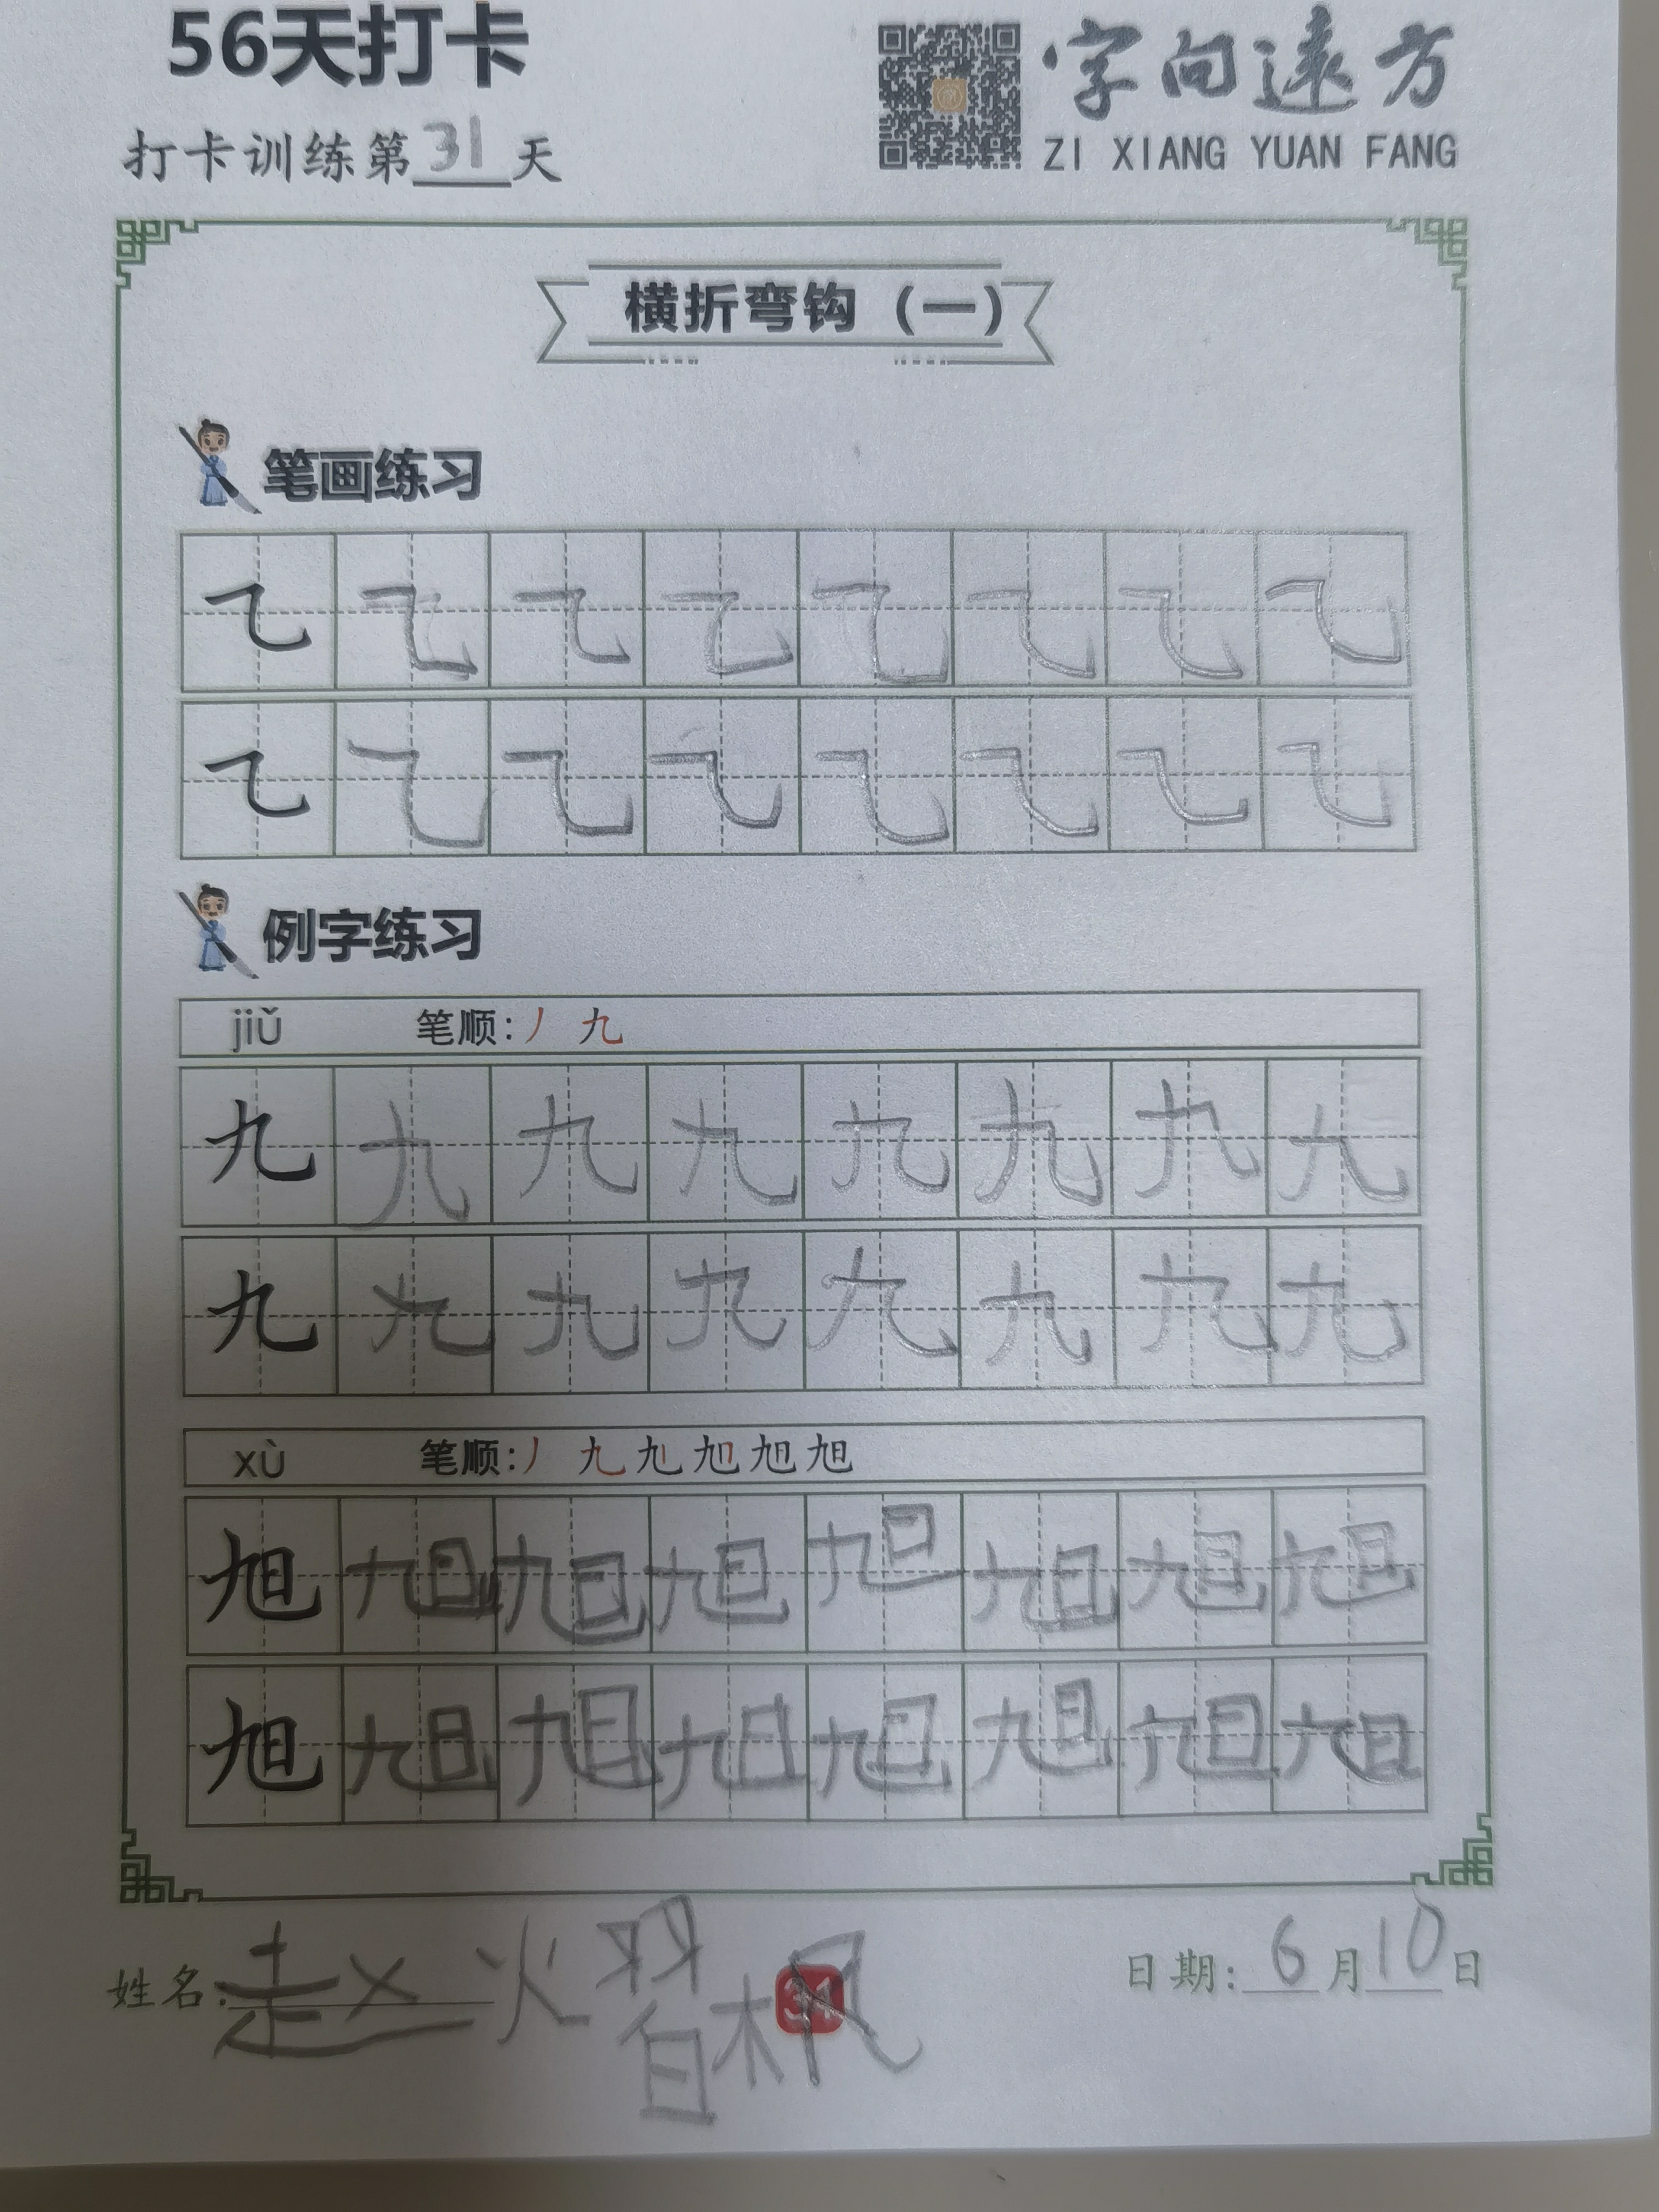 56天打卡
字向远方
打卡训练第31天
ZI XIANG YUAN FANG
横折弯钩（一）
笔画练习
㇈ ㇈ ㇈ ㇈ ㇈ ㇈ ㇈ ㇈
㇈ ㇈ ㇈ ㇈ ㇈ ㇈ ㇈ ㇈
例字练习
jiǔ 笔顺：丿 九
九 九 九 九 九 九 九 九
九 九 九 九 九 九 九 九
xù 笔顺：丿 九 旭 旭
旭 旭 旭 旭 旭 旭 旭 旭
旭 旭 旭 旭 旭 旭 旭 旭
姓名：赵 熠枫 日期：6月10日
31